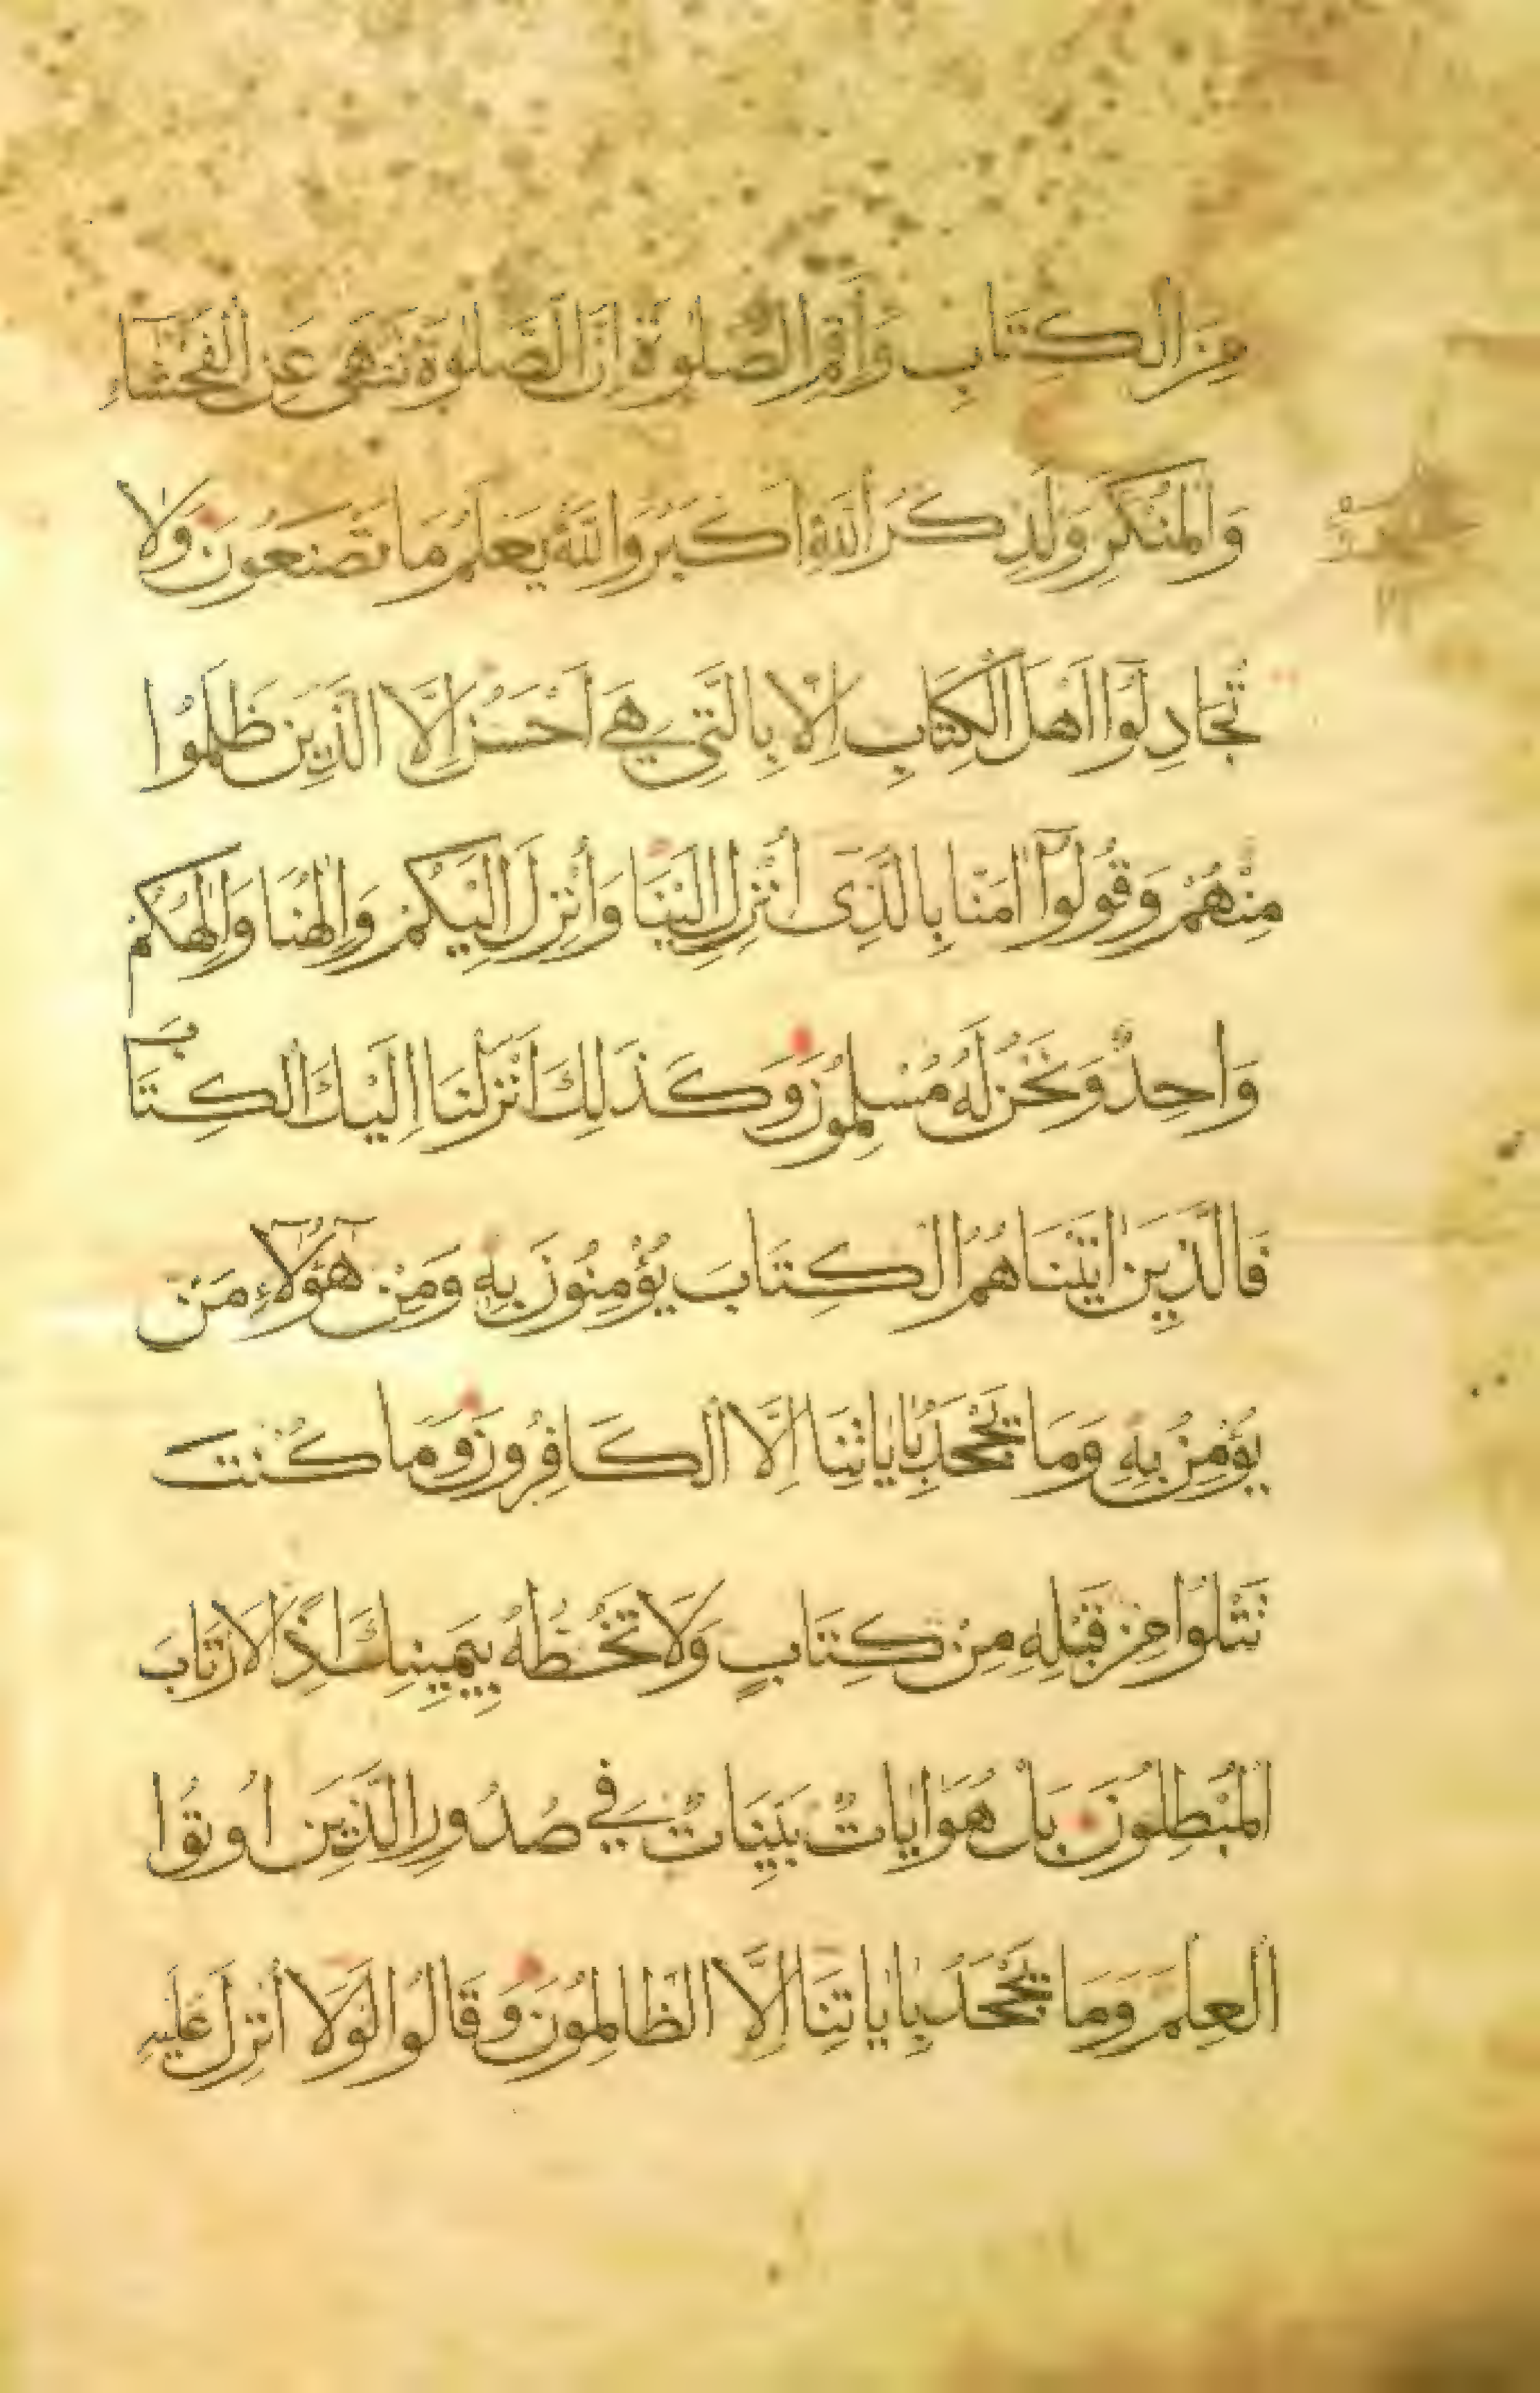 مِنَ الْكِتَابِ وَأَقِمِ الصَّلٰوةَ إِنَّ الصَّلٰوةَ تَنْهٰى عَنِ الْفَحْشَاءِ
وَالْمُنْكَرِ وَلَذِكْرُ اللّٰهِ اَكْبَرُ وَاللّٰهُ يَعْلَمُ مَا تَصْنَعُونَ وَلَا
تُجَادِلُوا اَهْلَ الْكِتَابِ اِلَّا بِالَّتِي هِيَ اَحْسَنُ اِلَّا الَّذِينَ ظَلَمُوا
مِنْهُمْ وَقُولُوٓا اٰمَنَّا بِالَّذِىٓ اُنْزِلَ اِلَيْنَا وَاُنْزِلَ اِلَيْكُمْ وَاِلٰهُنَا وَاِلٰهُكُمْ
وَاحِدٌ وَنَحْنُ لَهُ مُسْلِمُونَ وَكَذٰلِكَ اَنْزَلْنَا اِلَيْكَ الْكِتَابَ
فَالَّذِينَ اٰتَيْنَاهُمُ الْكِتَابَ يُؤْمِنُونَ بِهِ وَمِنْ هٰٓؤُلَآءِ مَنْ
يُؤْمِنُ بِهِ وَمَا يَجْحَدُ بِاٰيَاتِنَا اِلَّا الْكَافِرُونَ وَمَا كُنْتَ
تَتْلُوا مِنْ قَبْلِهِ مِنْ كِتَابٍ وَلَا تَخُطُّهُ بِيَمِينِكَ اِذًا لَارْتَابَ
الْمُبْطِلُونَ بَلْ هُوَ اٰيَاتٌ بَيِّنَاتٌ فِي صُدُورِ الَّذِينَ اُوتُوا
الْعِلْمَ وَمَا يَجْحَدُ بِاٰيَاتِنَا اِلَّا الظَّالِمُونَ وَقَالُوا لَوْلَا اُنْزِلَ عَلَيْهِ